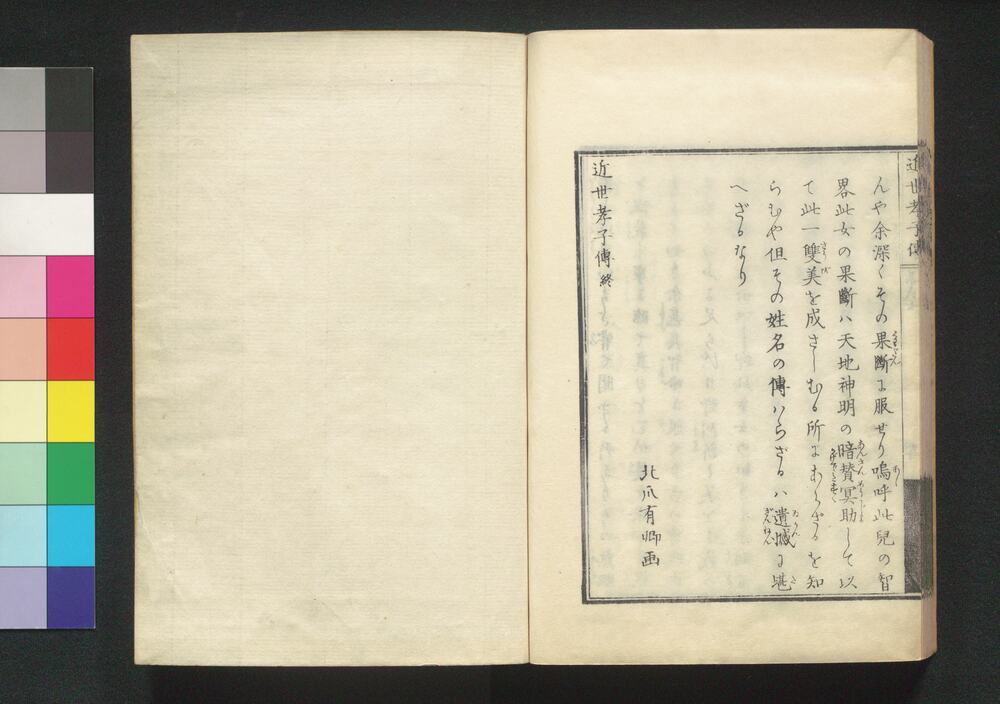 近世孝子傳
んや余深くその果斷に服せり嗚呼此兒の智
畧此女の果斷ハ天地神明の暗賛冥助して以
て此一雙美を成さしむる所にあらざるを知
らむや但その姓名の傳ハらざるハ遺憾に堪
へざるなり
北爪有卿画
近世孝子傳終